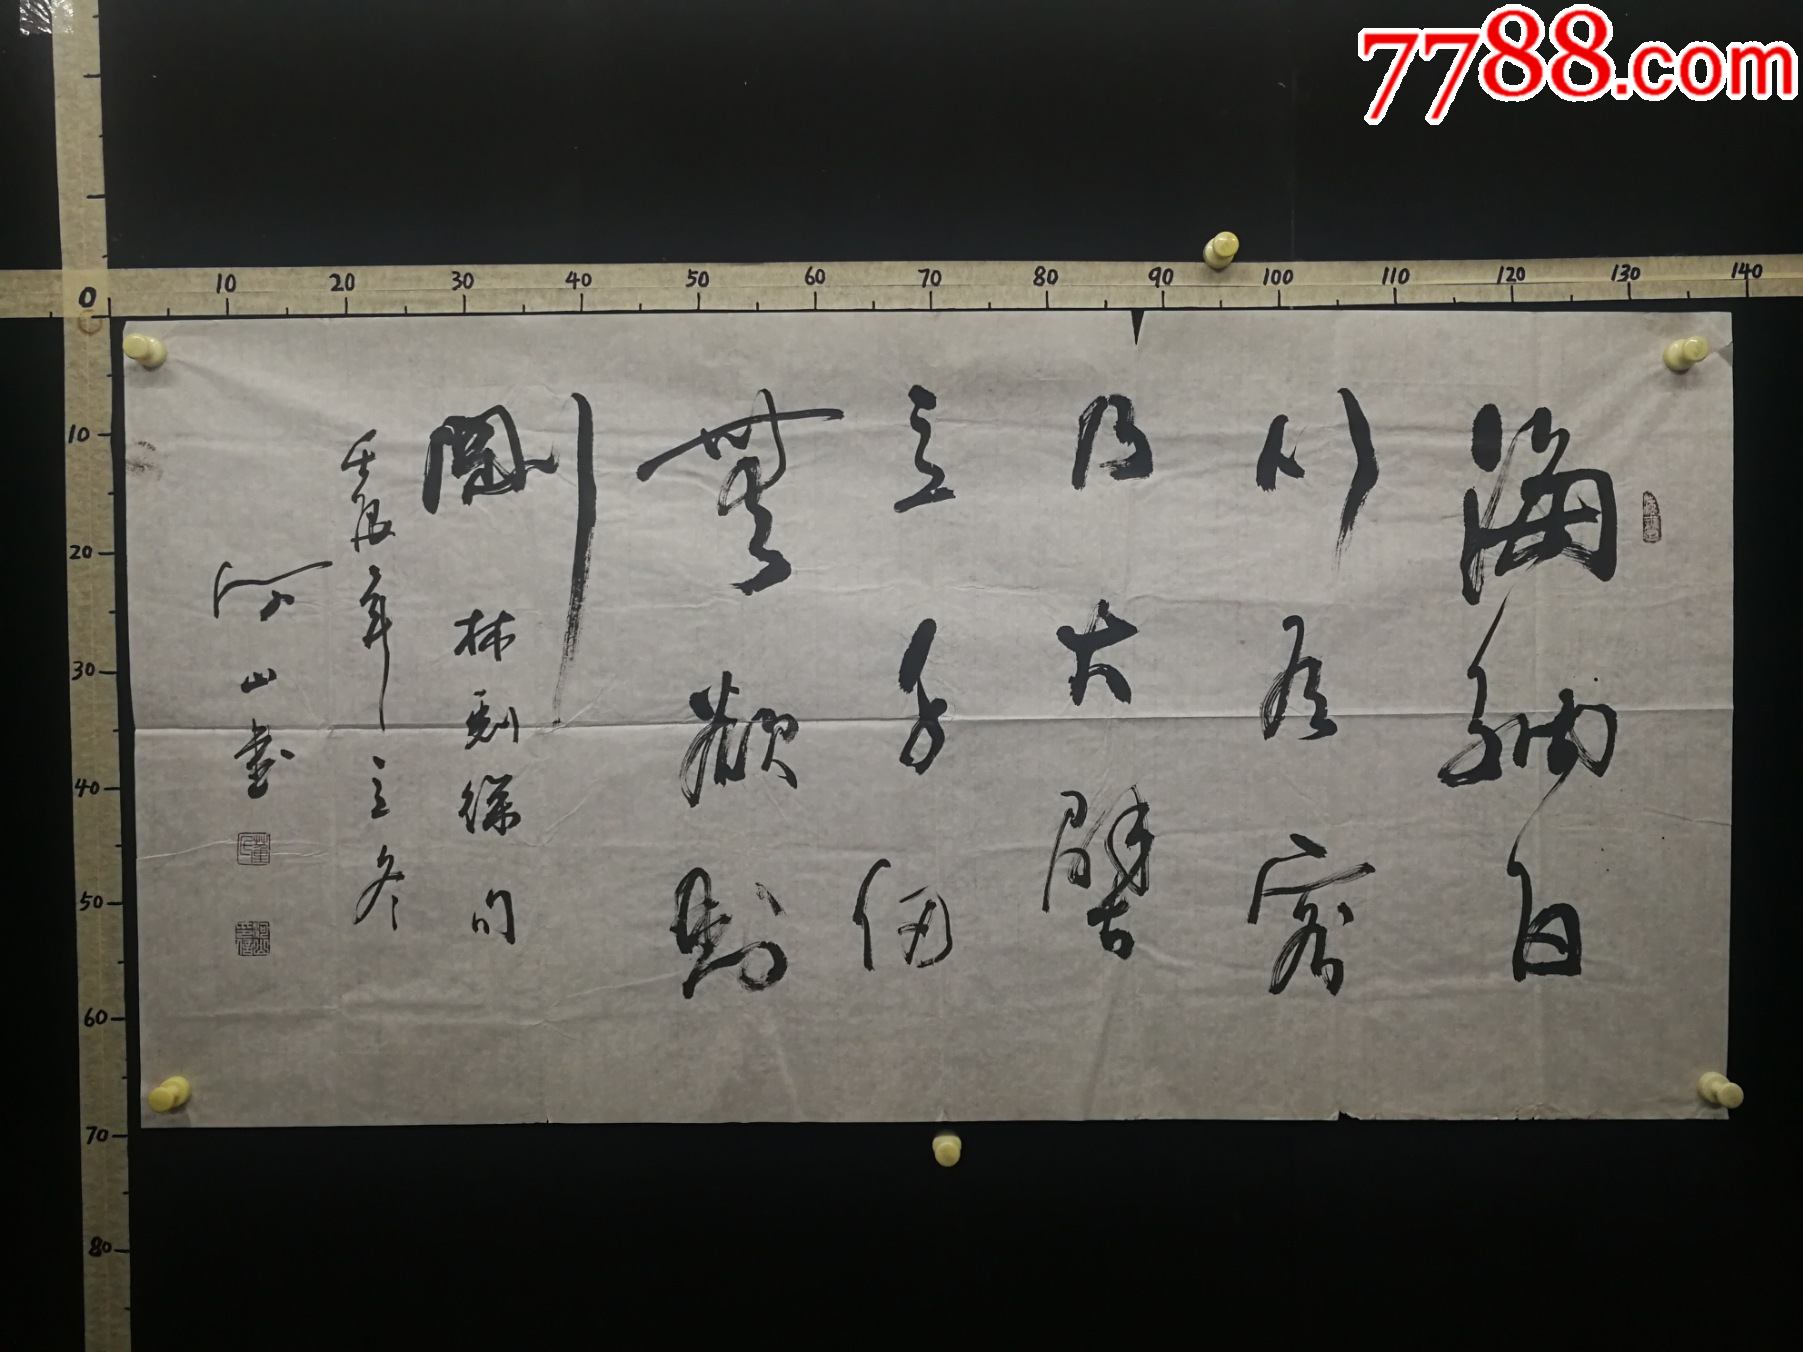 7788.com
0 10 20 30 40 50 60 70 80 90 100 110 120 130 140
10
20
30
40
50
60
70
80
海納百
川有容
乃大壁
立千仞
無欲則
剛
林則徐句
壬辰年立冬
河山書